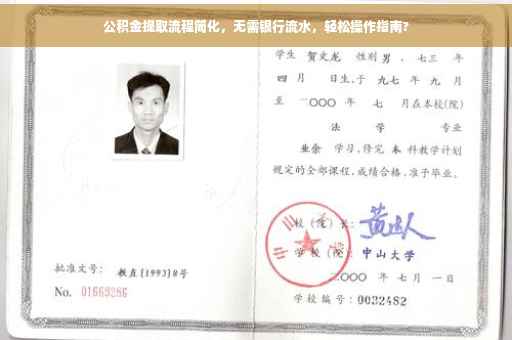 公积金提取流程简化，无需银行流水，轻松操作指南?
学生 贺文龙 性别 男 ，七三 年
四 月 日生，于 九七 年 九 月
至 二〇〇〇 年 七 月在本校(院)
法 学 专业
业余 学习，修完 本 科教学计划
规定的全部课程，成绩合格，准予毕业。
校（院）长：
学 校（院）：中山大学
二〇〇〇 年 七 月 一 日
学校编号：0032482
批准文号： 教直[1993]8号
No. 01669286